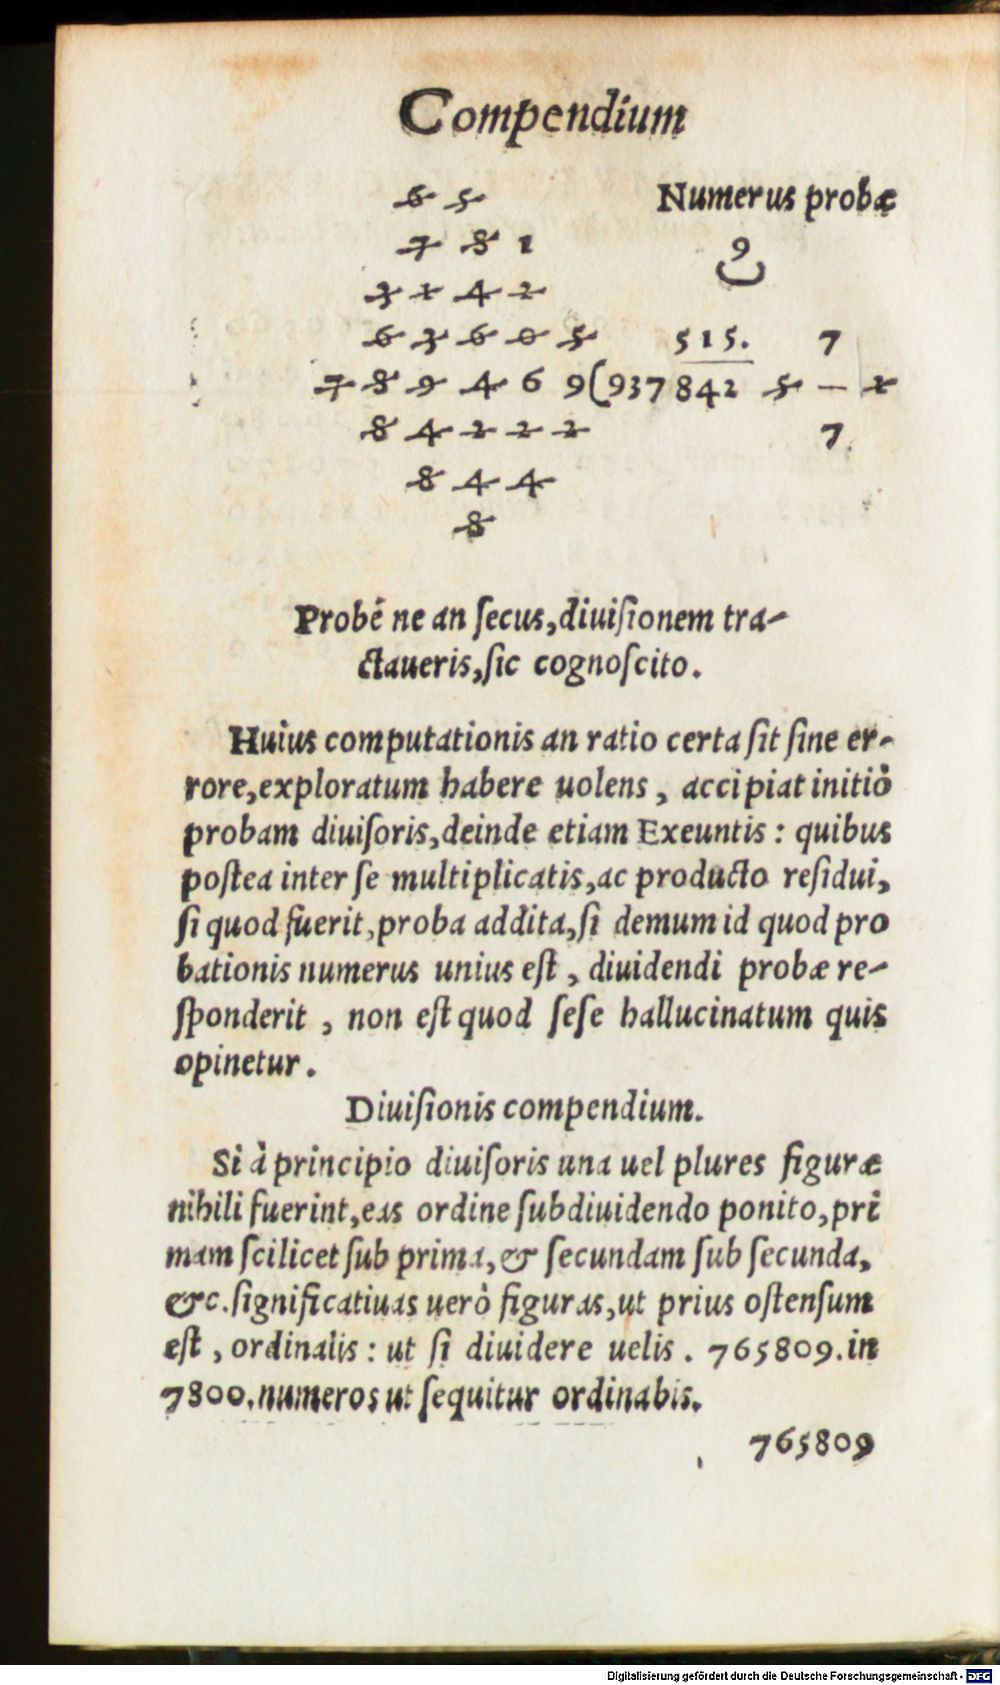 Compendium
6 5 Numerus probæ
7 8 1 9
3 1 4 2
6 3 6 0 5 515. 7
7 8 9 4 6 9(937842 5 — 1
8 4 2 2 2 7.
8 4 4
8
Probè ne an ſecus, diuiſionem tra-
ctaueris, ſic cognoſcito.
Huius computationis an ratio certa ſit ſine er-
rore, exploratum habere uolens, accipiat initiò
probam diuiſoris, deinde etiam Exeuntis: quibus
poſtea inter ſe multiplicatis, ac producto reſidui,
ſi quod fuerit, proba addita, ſi demum id quod pro
bationis numerus unius eſt, diuidendi probæ re-
ſponderit, non eſt quod ſeſe hallucinatum quis
opinetur.
Diuiſionis compendium.
Si à principio diuiſoris una uel plures figuræ
nihili fuerint, eas ordine ſubdiuidendo ponito, pri
mam ſcilicet ſub prima, & ſecundam ſub ſecunda,
&c. ſignificatiuas uerò figuras, ut prius oſtenſum
eſt, ordinalis: ut ſi diuidere uelis. 765809. in
7800. numeros ut ſequitur ordinabis.
765809
Digitalisierung gefördert durch die Deutsche Forschungsgemeinschaft - DFG